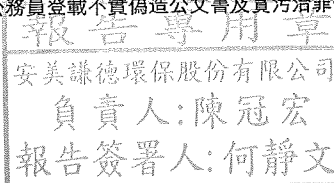 公務員登載不實偽造公文書及貪污治罪
報告專用章
安美謙德環保股份有限公司
負責人:陳冠宏
報告簽署人:何靜文